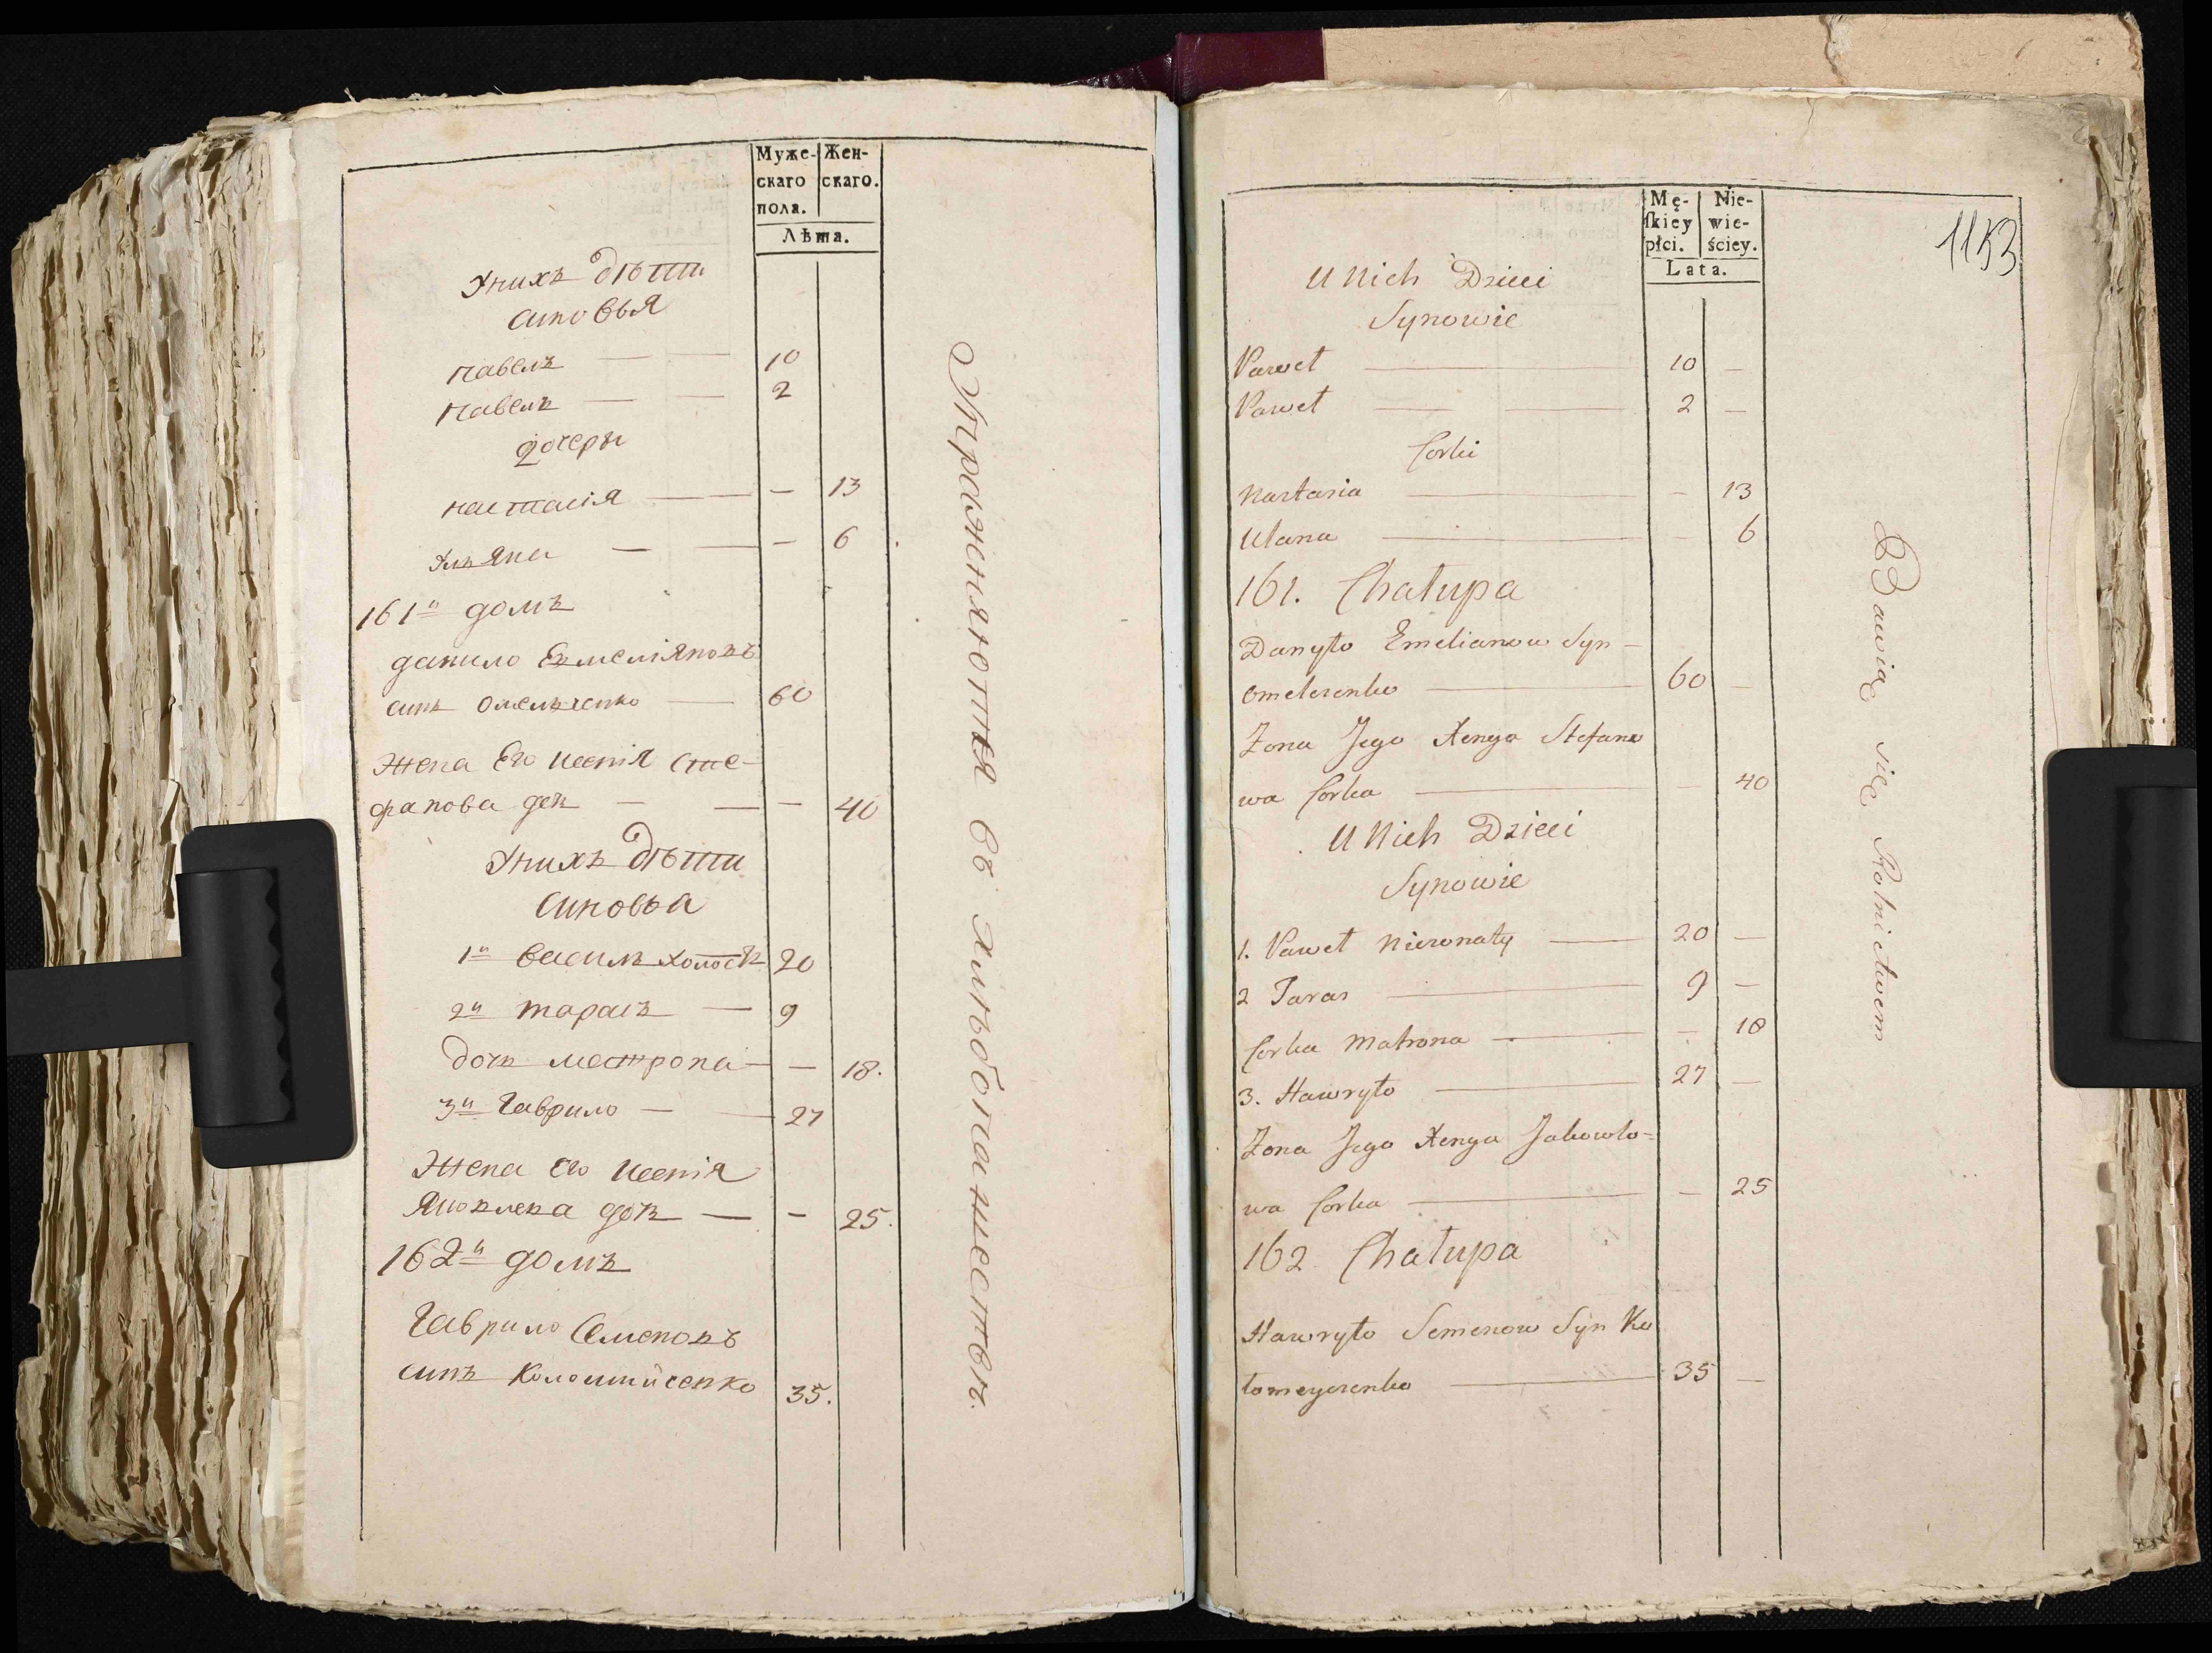 Муже- Жен-
скаго скаго.
пола.
Лѣта.
Унихъ дѣти
синовья
павелъ — — 10
павелъ — — 2
дочеры
настасія — — — 13
Ульяна — — — 6
161й домъ
данило Емеліяновъ
синъ Омельченко — 60
Жена Его Ксенія Сте-
фанова дочь — — — 40
Унихъ дѣти
синовья
1й василь холостъ 20
2й тарасъ — 9
дочь мотрона — — 18.
3й Гаврило — — 27
Жена Его Ксенія
Яковлева дочь — — 25.
162й домъ
Гаврило Семеновъ
синъ Коломийченко 35.
Упражняются въ хлѣбопашествѣ.
1153
Mę- Nie-
skiey wie-
płci. ściey.
Lata.
U Nich Dzieci
Synowie
Paweł — 10 —
Paweł — — 2 —
Corki
Nastasia — — 13
Ulana — — 6
161. Chałupa
Danyło Emelianow Syn —
Omelczenko — 60 —
Żona Jego Xenya Stefano
wa Corka — — 40
U Nich Dzieci
Synowie
1. Paweł Nieżonaty — 20 —
2 Taras — 9 —
Corka Matrona — — 18
3. Hawryło — 27 —
Żona Jego Xenya Jakowlo=
wa Corka — — 25
162 Chałupa
Hawryło Semenow Syn Ko
łomeyczenko — 35 —
Bawią się Rolnictwem